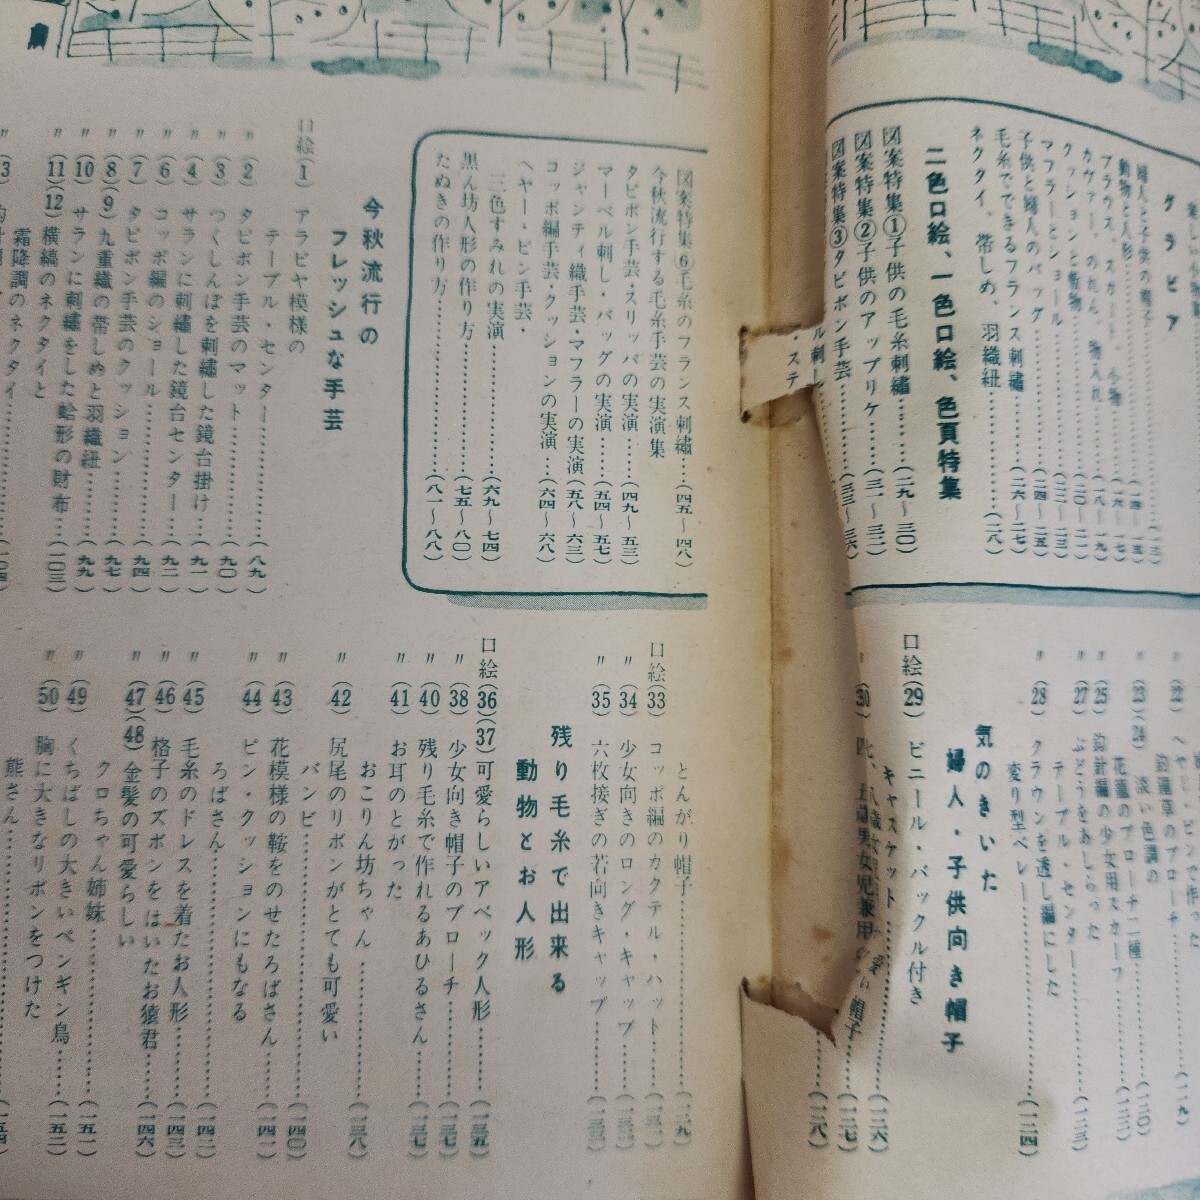 グラビア
婦人と子供の帽子……(一三)
動物と人形……(一四〜一五)
ブラウス、スカート、小物……(一六〜一七)
カヴァー、のれん、物入れ……(一八〜一九)
クッションと敷物……(二〇〜二一)
マフラーとショール……(二二〜二三)
子供と婦人のバッグ……(二四〜二五)
毛糸でできるフランス刺繡……(二六〜二七)
ネクタイ、帯じめ、羽織紐……(二八)
二色口絵、一色口絵、色頁特集
図案特集①子供の毛糸刺繡……(二九〜三〇)
図案特集②子供のアップリケ……(三一〜三二)
図案特集③タピポン手芸……(三三〜三六)
ル刺し
・ステ
図案特集⑥毛糸のフランス刺繡…(四五〜四八)
今秋流行する毛糸手芸の実演集
タピポン手芸・スリッパの実演……(四九〜五三)
マーベル刺し・バッグの実演……(五四〜五七)
ジャンティ織手芸・マフラーの実演(五八〜六三)
コッポ編手芸・クッションの実演…(六四〜六八)
ヘヤー・ピン手芸・
三色すみれの実演……(六九〜七四)
黒ん坊人形の作り方……(七五〜八〇)
たぬきの作り方……(八一〜八八)
今秋流行の
フレッシュな手芸
口絵(1) アラビヤ模様の
テーブル・センター……(八九)
〃(2) タピポン手芸のマット……(九〇)
〃(3) つくしんぼを刺繡した鏡台掛け…(九一)
〃(4) サランに刺繡した鏡台センター…(九二)
〃(6) コッポ編のショール……(九四)
〃(7) タピポン手芸のクッション……(九七)
〃(8)(9) 九重織の帯じめと羽織紐……(九九)
〃(10) サランに刺繡をした蛤形の財布…(一〇三)
〃(11)(12) 横縞のネクタイと
霜降調のネクタイ……(一〇四)
〃(22) ヘヤー・ピンで作った
鈴蘭草のブローチ……(一一九)
〃(23)(24) 淡い色調の
花籠のブローチ二種……(一二〇)
〃(25) 鈎針編の少女用スカーフ……(一二二)
〃(27) ぶどうをあしらった
テーブル・センター……(一二三)
〃(28) クラウンを透し編にした
変り型ベレー……(一二四)
気のきいた
婦人・子供向き帽子
口絵(29) ビニール・バックル付き
キャスケット……(一二六)
〃(30) 四
七、八歳
男女児兼用
帽子……(一二七)
……(一二八)
とんがり帽子……(一二九)
口絵(33) コッポ編のカクテル・ハット……(一三一)
〃(34) 少女向きのロング・キャップ……(一三二)
〃(35) 六枚接ぎの若向きキャップ……(一三三)
残り毛糸で出来る
動物とお人形
口絵(36)(37) 可愛らしいアベック人形……(一三五)
〃(38) 少女向き帽子のブローチ……(一三七)
〃(40) 残り毛糸で作れるあひるさん……(一三七)
〃(41) お耳のとがった
おこりん坊ちゃん……(一三八)
〃(42) 尻尾のリボンがとても可愛い
バンビ……(一四〇)
〃(43) 花模様の鞍をのせたろばさん……(一四一)
〃(44) ピン・クッションにもなる
ろばさん……(一四二)
〃(45) 毛糸のドレスを着たお人形……(一四三)
〃(46) 格子のズボンをはいたお猿君……(一四六)
〃(47)(48) 金髪の可愛らしい
クロちゃん姉妹……(一五一)
〃(49) くちばしの大きいペンギン鳥……(一五二)
〃(50) 胸に大きなリボンをつけた
熊さん……(一五四)